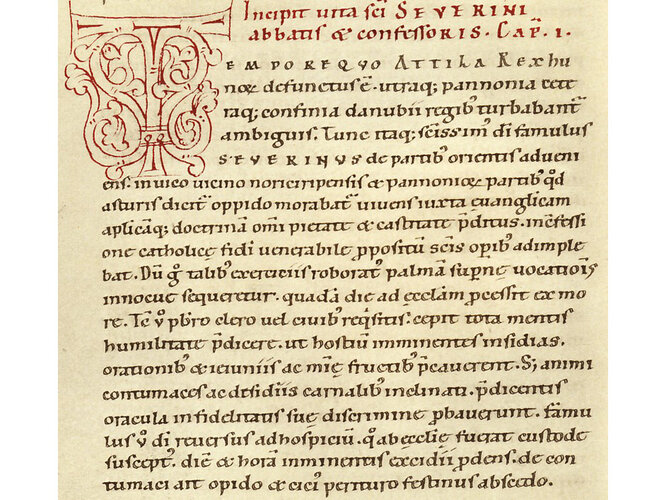 Incipit uita sc̄i SEVERINI
abbatis & confessoris. Cap̄. I.
TEMPORE QVO ATTILA Rex hu
noꝝ defunctus ē. utraq; pannonia cete
raq; confinia danubii regib; turbabant̄
ambiguis. Tunc itaq; sc̄issim᷒ dī famulus
SEVERINUS de partib; orientis adueni
ens. in uico uicino noriciripensis & pannonioꝝ partib; qd̊
asturis dicit̄ oppido morabat̄ uiuens iuxta euanglicam
aplicāq; doctrinā om̄i pietate & castitate p̄ditus. in cōfessi
one catholicę fidī uenerabile ꝓpositū sc̄is opib; adimple
bat. Dū gͦ talib; exerciciis roborat᷒ palmā supnę uocationis̄
innocue sequeretur. quadā die ad ecclām ꝓcessit ex mo
re. Tc̄ vͦ pbr̄o clero uel ciuib; reqͥsitis. cepit tota mentis
humilitate p̄dicere. ut hostiū imminentes insidias.
orationib; & ieiuniis ac mīę fructib; p̄cauerent. S; animi
contumaces ac desidiis carnalib; inclinati. p̄dicentis
oracula infidelitatis suę discrimine ꝓbauerunt. Famu
lus vͦ dī reuersus ad hospiciū. qͦ ab ecclię fuerat custode
suscept᷒. diē & horā imminentis excidii ꝓdens. de con
tumaci ait opido & cici᷒ perituro festinus abscedo.